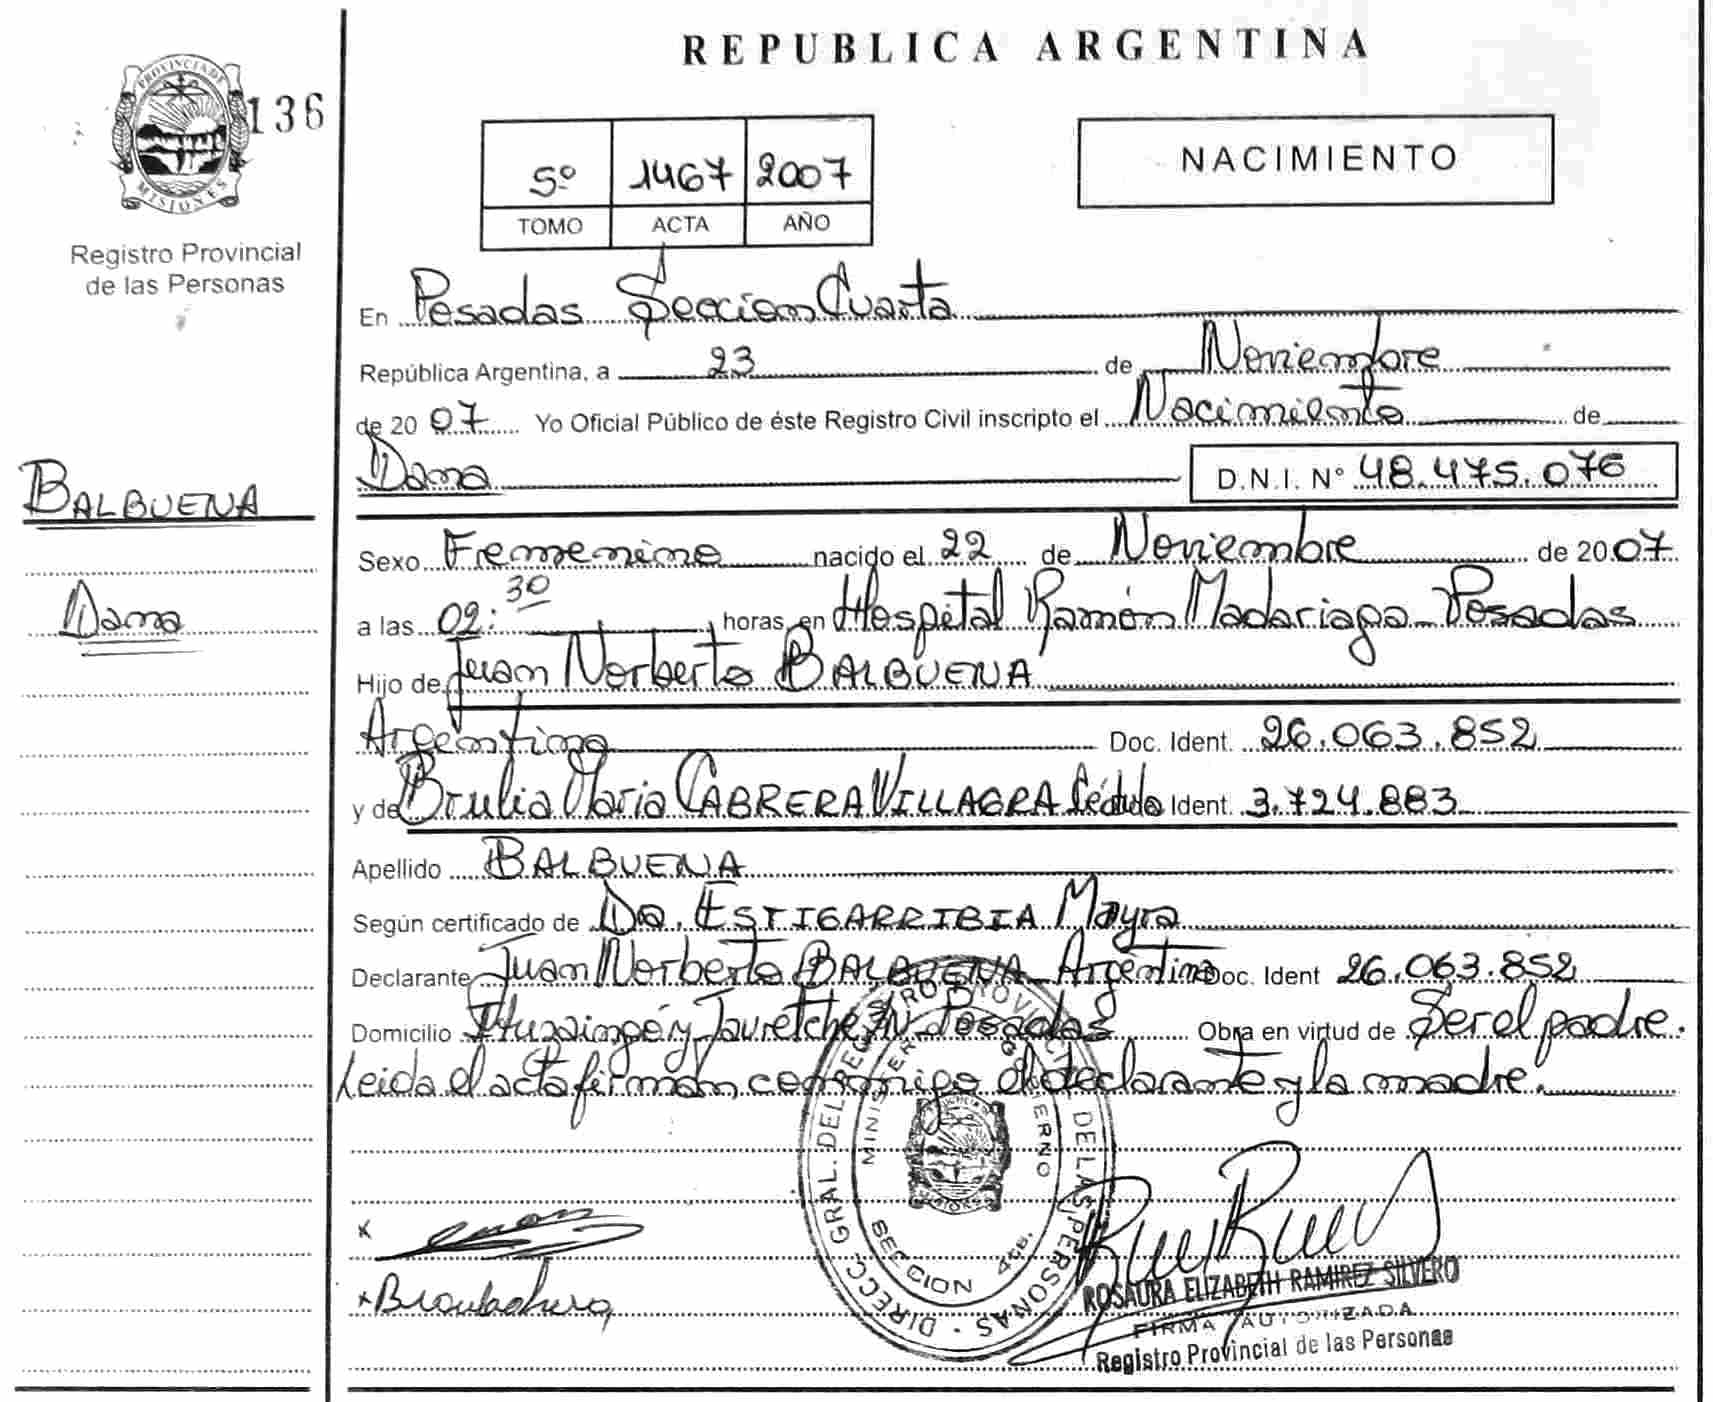 REPUBLICA ARGENTINA
PROVINCIA DE
MISIONES
136
Registro Provincial
de las Personas
5º 1467 2007
TOMO ACTA AÑO
NACIMIENTO
En Posadas Seccion Cuarta
República Argentina, a 23 de Noviembre
de 2007 Yo Oficial Público de éste Registro Civil inscripto el Nacimiento de
Dana D.N.I. Nº 48.475.076
BALBUENA
Dana
Sexo Femenino nacido el 22 de Noviembre de 2007
a las 02:30 horas en Hospital Ramón Madariaga Posadas
Hijo de Juan Norberto BALBUENA
Argentino Doc. Ident. 26.063.852
y de Brulia Maria CABRERA VILLAGRA Cédula Ident. 3.724.883
Apellido BALBUENA
Según certificado de Da. ESTIGARRIBIA Mayra
Declarante Juan Norberto BALBUENA Argentino Doc. Ident 26.063.852
Domicilio Ituzaingó y Jauretche S/N Posadas Obra en virtud de Ser el padre.
Leida el acta firman, conmigo el declarante y la madre.
DIRECC. GRAL. DEL REGISTRO PROVINCIAL DE LAS PERSONAS
MINISTERIO GOBIERNO
SECCION 4ta.
ROSAURA ELIZABETH RAMIREZ SILVERO
FIRMA AUTORIZADA
Registro Provincial de las Personas